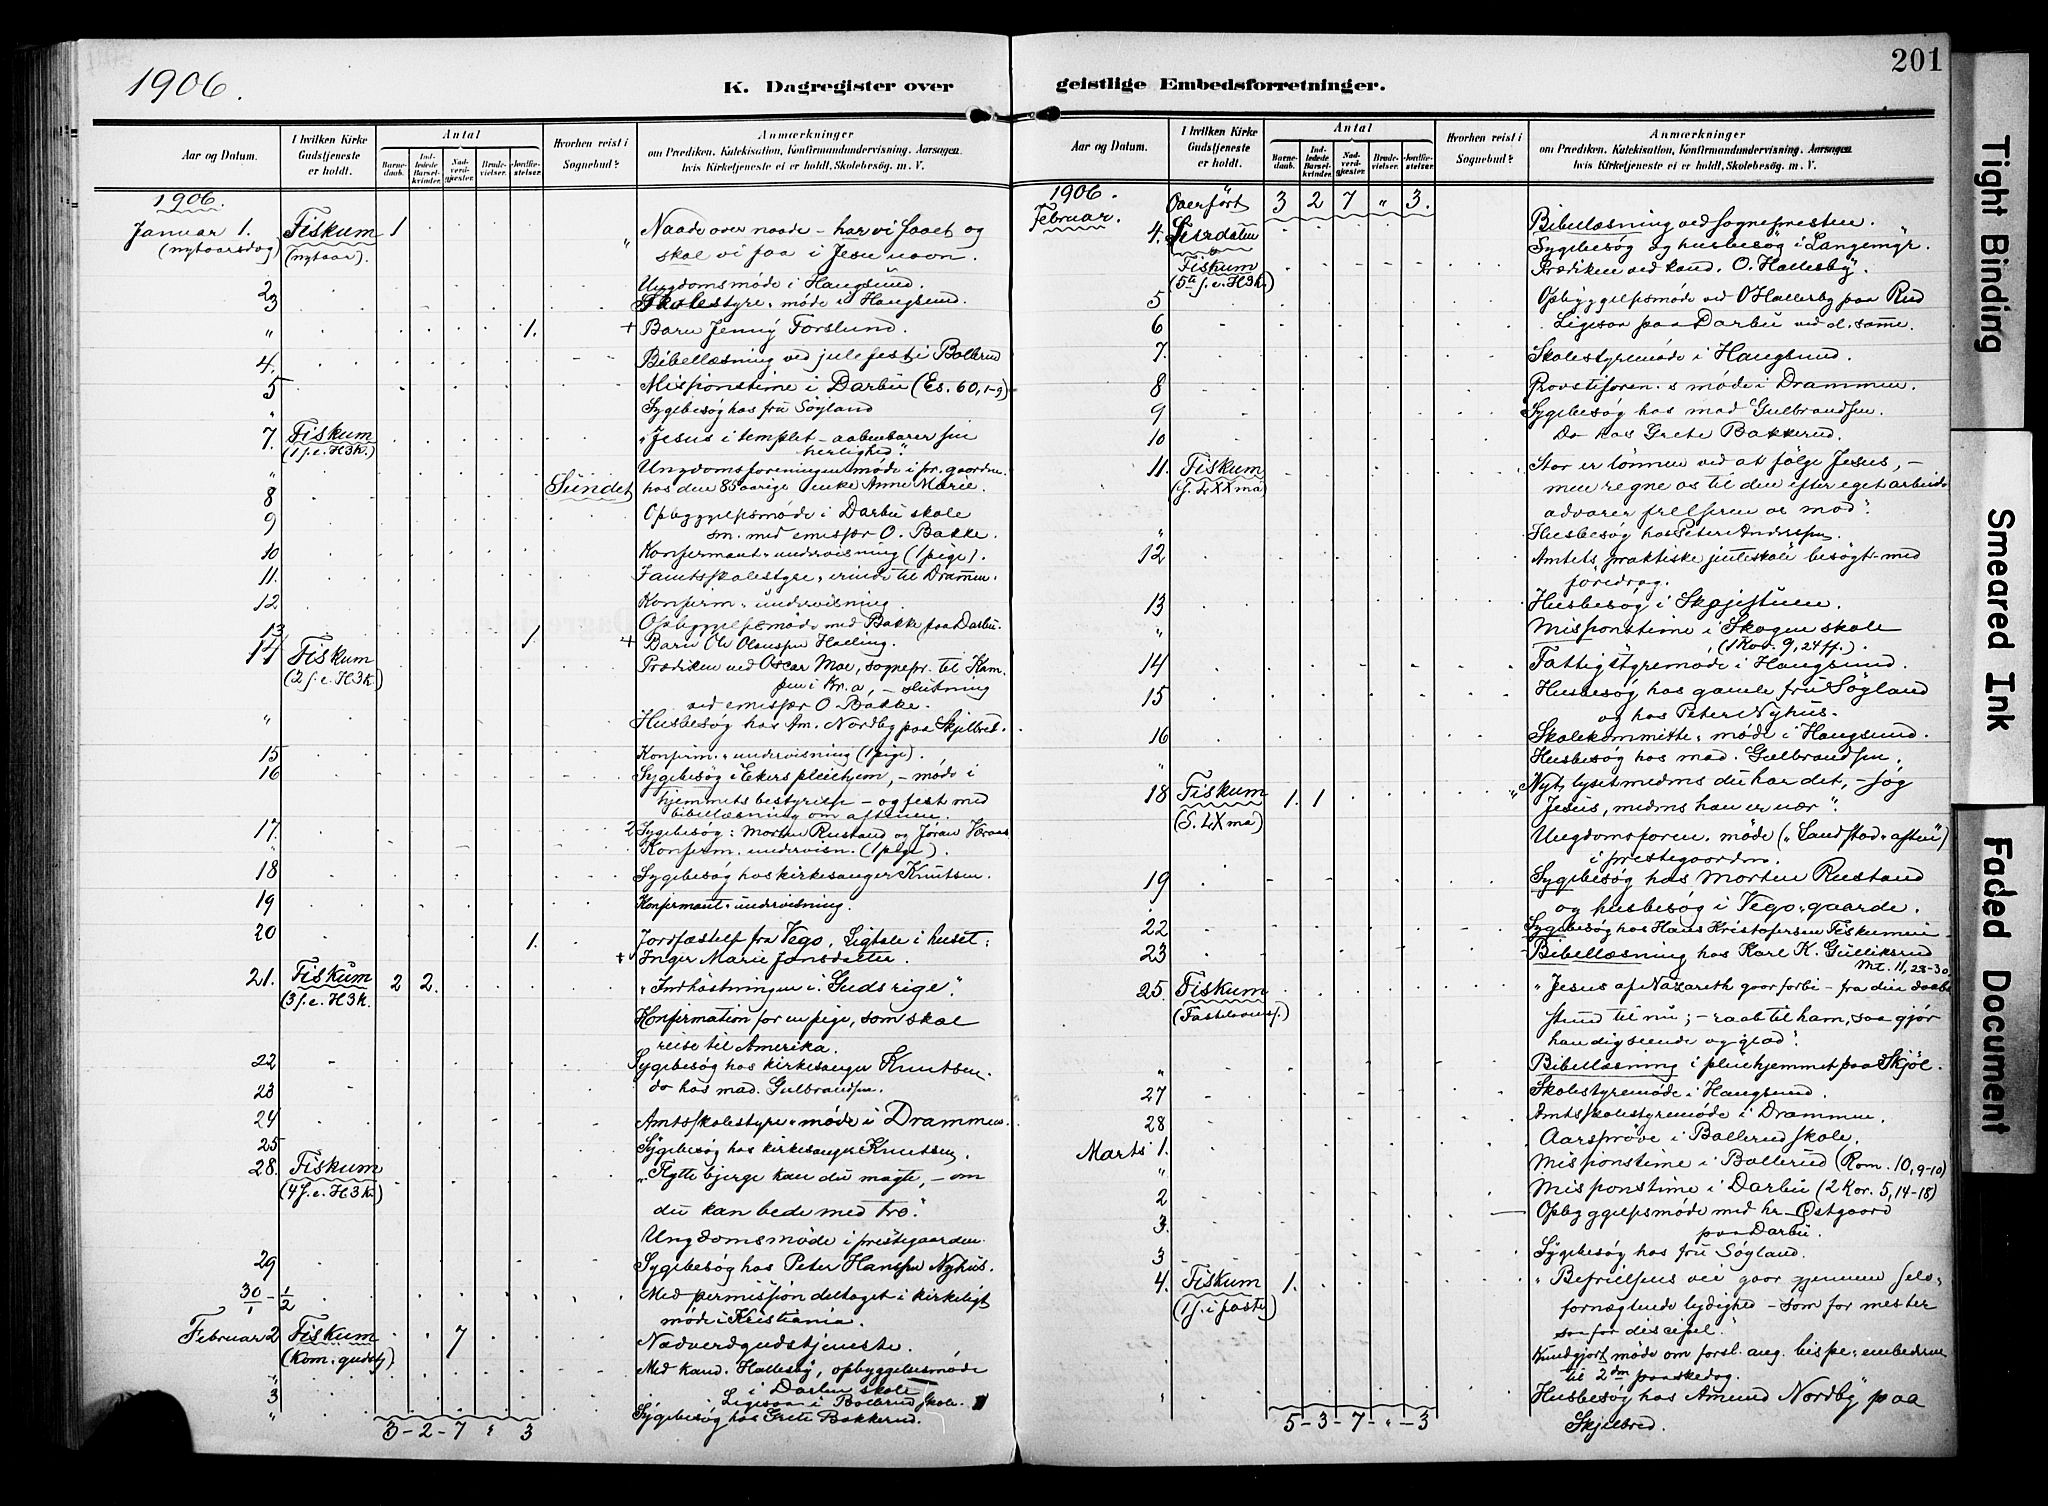 1906.
K. Dagregister over
Aar og Datum.
I hvilken Kirke Gudstjeneste er holdt.
Antal
Barnedaab.
Indledede Barselkvinder.
Nadverdgjester.
Brudevielser.
Jordfæstelser.
Hvorhen reist i Sognebud?
Anmærkninger
om Prædiken, Katekisation, Konfirmandundervisning, Aarsagen
hvis Kirketjeneste ei er holdt, Skolebesög. m. V.
1906.
Januar 1. Fiskum 1 Naade over naade – har vi faaet og
(nytaarsdag) (nytaar). skal vi faa i Jesu navn.
2 Ungdomsmøde i Haugsund.
3 Skolestyre-møde i Haugsund.
" 1. + Barn Jenny Forslund.
4. Bibellæsning ved julefest i Bollerud
5 Missionstime i Darbu (Es. 60, 1-9)
" Sygebesøg hos fru Søyland
7. Fiskum "Jesus i templet – aabenbarer sin
(1 s. e. H3k.) herlighed".
" Ungdomsforeningens møde i pr. gaarden.
8 Sundet hos den 85 aarige enke Anne Marie.
9 Opbyggelsesmøde i Darbu skole
sm. med emissær O. Bakke.
10 Konfirmant-undervisning (1 pige).
11. I amtsskolestyre-erinde til Drammen.
12 Konfirm.-undervisning.
13 Opbyggelsesmøde med Bakke paa Darbu.
14 Fiskum 1 + Barn Ole Olenssen Hælling.
(2 s. e. H3k.) Prædiken ved Oscar Moe, sognepr. til Kam
pen i Kr.a, – slutning
ved emissær O. Bakke.
" Husbesøg hos Am. Nordby paa Skjelbred.
15 Konfirm.-undervisning (1 pige).
16 Sygebesøg i Ekers pleiehjem, – møde i
hjemmets bestyrelse – og fest med
bibellæsning om aftenen.
17. 2 Sygebesøg: Morten Rustand og Jøran Væraas
Konfirm. undervisn. (1 pige).
18 Sygebesøg hos kirkesanger Knutsen.
19 Konfirmant-undervisning.
20 1. Jordfæstelse fra Vego. Ligtale i huset:
+ Inger Marie Jonsdatter.
21. Fiskum 2 2. "Indhøstningen i Guds rige".
(3 s. e. H3k. Konfirmation for en pige, som skal
reise til Amerika.
22 Sygebesøg hos kirkesanger Knutsen.
23 do hos mad. Gulbrandsen.
24 Amtsskolestyre-møde i Drammen.
25 Sygebesøg hos kirkesanger Knutsen.
28. Fiskum "Flytte bjerge kan du magte, – om
(4 s. e. H3k.) du kan bede med tro".
Ungdomsmøde i prestegaarden.
29 Sygebesøg hos Peter Hanssen Nyhus.
30/1 – 1/2 Med permission deltaget i kirkeligt
møde i Kristiania.
Februar 2 Fiskum 7 Nadverdgudstjeneste.
(Kom. gudstj) Med kand. Hallesby, opbyggelsesmøde
" i Darbu skole
3 Ligesaa i Bollerud skole.
" Sygebesøg hos Grete Bakkerud.
3 – 2 – 7 " 3
201
geistlige Embedsforretninger.
Aar og Datum.
I hvilken Kirke Gudstjeneste er holdt.
Antal
Barnedaab.
Indledede Barselkvinder.
Nadverdgjester.
Brudevielser.
Jordfæstelser.
Hvorhen reist i Sognebud?
Anmærkninger
om Prædiken, Katekisation, Konfirmandundervisning, Aarsagen
hvis Kirketjeneste ei er holdt, Skolebesög. m. V.
1906. Overført 3 2 7 " 3.
Februar.
4. Bibellæsning ved sognepresten.
Sygebesøg og husbesøg i Langemyr.
Fiskum Prædiken ved kand. O. Hallesby.
(5te s. e. H3k.)
5 Opbyggelsesmøde ved O Hallesby paa Rud
6 Ligesaa paa Darbu ved d. samme.
7. Skolestyremøde i Haugsund.
8 Provstiforen.s møde i Drammen.
9 Sygebesøg hos mad Gulbrandsen.
10 Do hos Grete Bakkerud.
11. Fiskum Stor er lønnen ved at følge Jesus, –
(S. LXXma) men regne os til den efter eget arbeide
advarer frelseren os mod".
" Husbesøg hos Peter Anderssen
12 Amtets praktiske pikeskole besøgt med
foredrag.
13 Husbesøg i Skojestuen.
" Missionstime i Skogen skole
(1 Kor. 9, 24 ff.).
14 Fattigstyremøde i Haugsund.
15 Husbesøg hos gamle fru Søyland
og hos Peter Nyhus.
16 Skolekommitte-møde i Haugsund.
" Husbesøg hos mad. Gulbrandsen.
18 Fiskum 1. 1 "Nyt lyset medens du har det, – søg
(S. LXma) Jesus, medens han er nær".
Ungdomsforen. møde ("Sandstad-aften")
i prestegaarden.
19 Sygebesøg hos Morten Rustand
og husbesøg i Vego-gaarde.
22 Sygebesøg hos Hans Kristofersen Fiskumeie
23 Bibellæsning hos Karl K. Gulliksrud
Mt. 11, 28-30.
25. Fiskum "Jesus af Nazareth gaar forbi – fra din daabs
(Fastelavnss.) stund til nu; – raab til ham, saa gjør
han dig seende og glad".
" Bibellæsning i pleiehjemmet paa Skjøl.
27 Skolestyremøde i Haugsund.
28 Amtsskolestyremøde i Drammen.
Marts 1. Aarsprøve i Bollerud skole.
" Missionstime i Bollerud (Rom. 10, 9-10)
2 Missionstime i Darbu (2 Kor. 5, 14-18)
3. Opbyggelsesmøde med hr. Østgaard
paa Darbu.
3 Sygebesøg hos fru Søyland.
4. Fiskum 1. "Befrielsens vei gaar gjennem selv-
(1 s. i faste) fornægtende lydighed – som for mester
saa for discipel."
Kundgjort møde om forsl. ang. bispe-embederne
til 2den paaskedag.
" Husbesøg hos Amund Nordby paa
Skjelbred.
5 – 3 – 7 – " – 3
Tight Binding
Smeared Ink
Faded Document